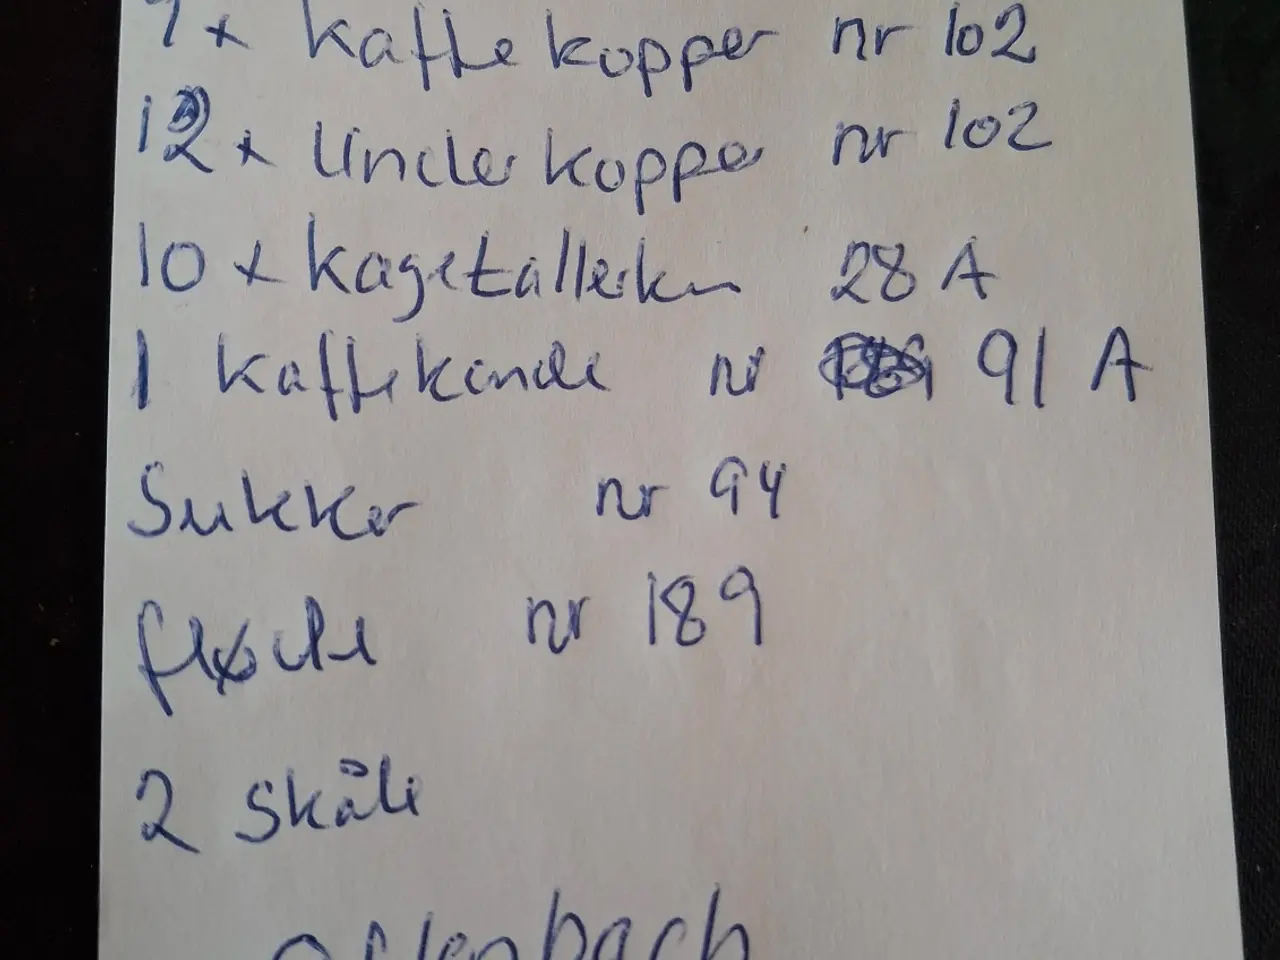 7 x kaffekopper nr 102
12 x Underkopper nr 102
10 x kagetallerken 28 A
1 kaffekande nr 91 A
Sukker nr 94
fløde nr 189
2 skåle
offenbach